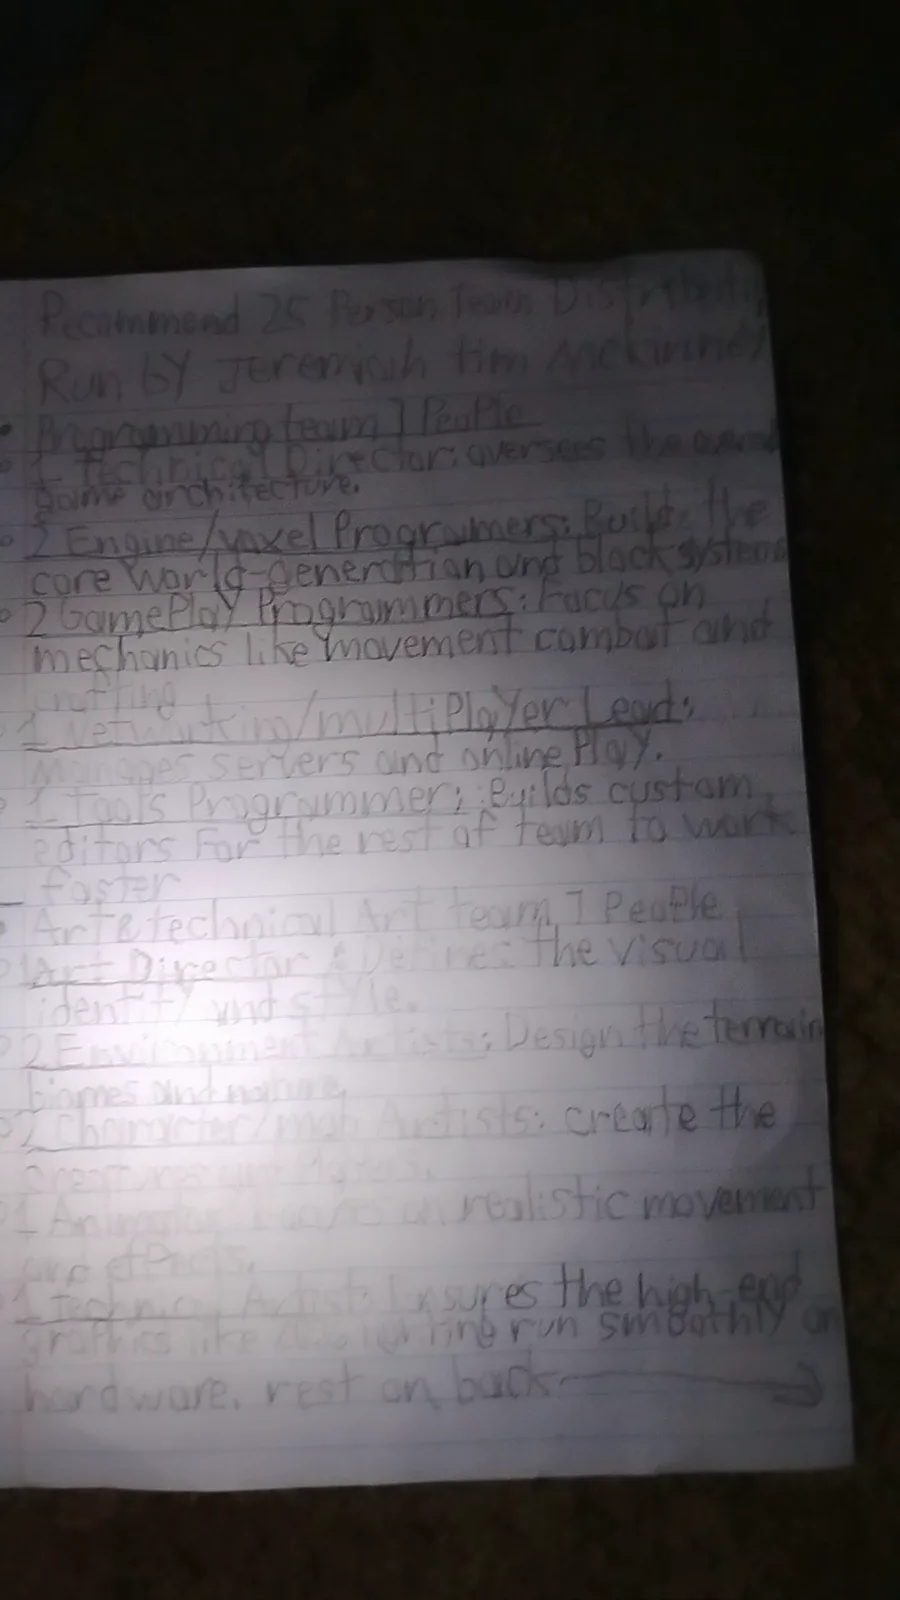 Recommend 25 Person Team
Run by Jeremiah tim Mckinney
Programming team 7 People
1 Technical Director: oversees the
game architecture.
2 Engine/voxel Programers: Build the
core world-generation and block systems
2 GamePlay Programmers: Focus on
mechanics like movement combat and
crafting
1 Networking/multiPlayer Lead:
Manages servers and online Play.
1 Tools Programmer: Builds custom
editors For the rest of team to work
faster
Art & technical Art team 7 People
1 Art Director: Defines the visual
identity and style.
2 Environment Artists: Design the terrain
biomes and nature
2 Character/mob Artists: create the
1 realistic movement
and effects.
1 Technical Artist: Ensures the high-end
graphics like run smoothly on
hardware. rest on back